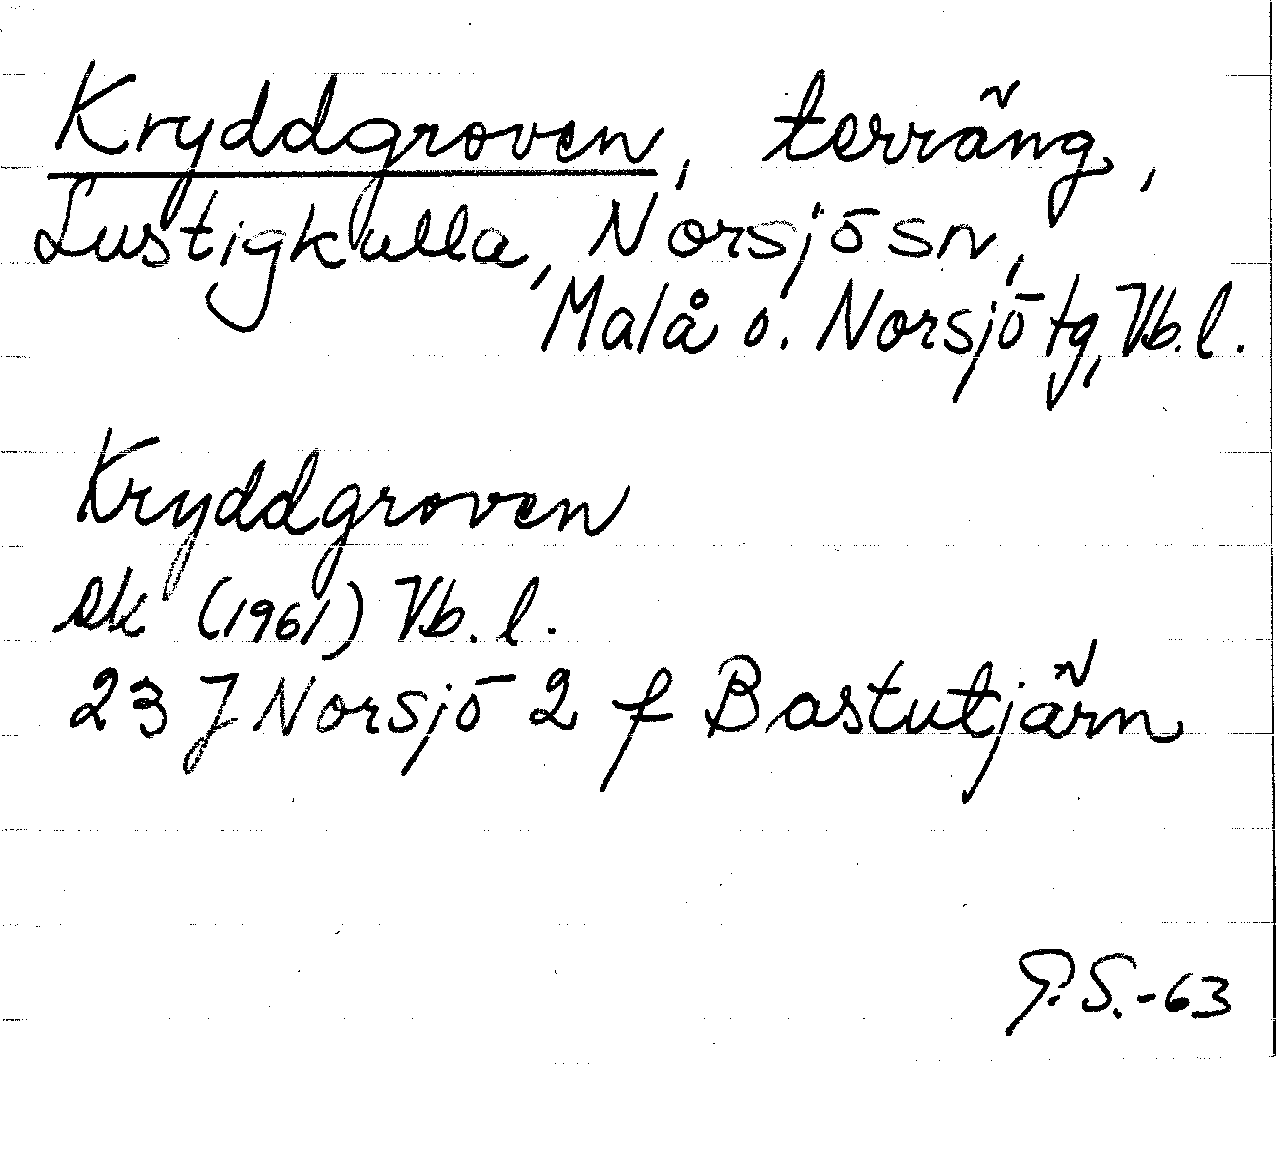 Kryddgroven, terräng,
Lustigkulla, Norsjö sn,
Malå o. Norsjö tg, Vb. l.
Kryddgroven
ek (1961) Vb. l.
23 J Norsjö 2 f Bastutjärn
P.S.-63